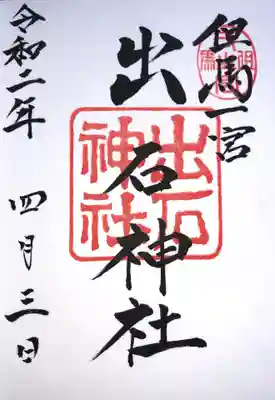 但馬一宮
出石神社
出石
神社
令和二年
四月三日